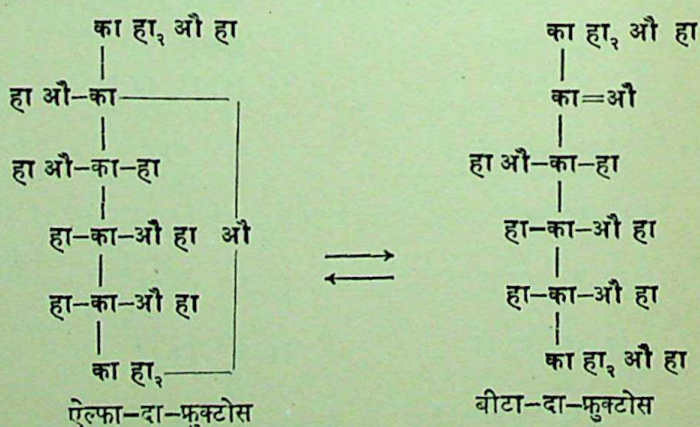 का हा₂ औ हा
हा औ–का
हा औ–का–हा
हा–का–औ हा औ
हा–का–औ हा
का हा₂
ऐल्फा–दा–फ्रुक्टोस
का हा₂ औ हा
का=औ
हा औ–का–हा
हा–का–औ हा
हा–का–औ हा
का हा₂ औ हा
बीटा–दा–फ्रुक्टोस